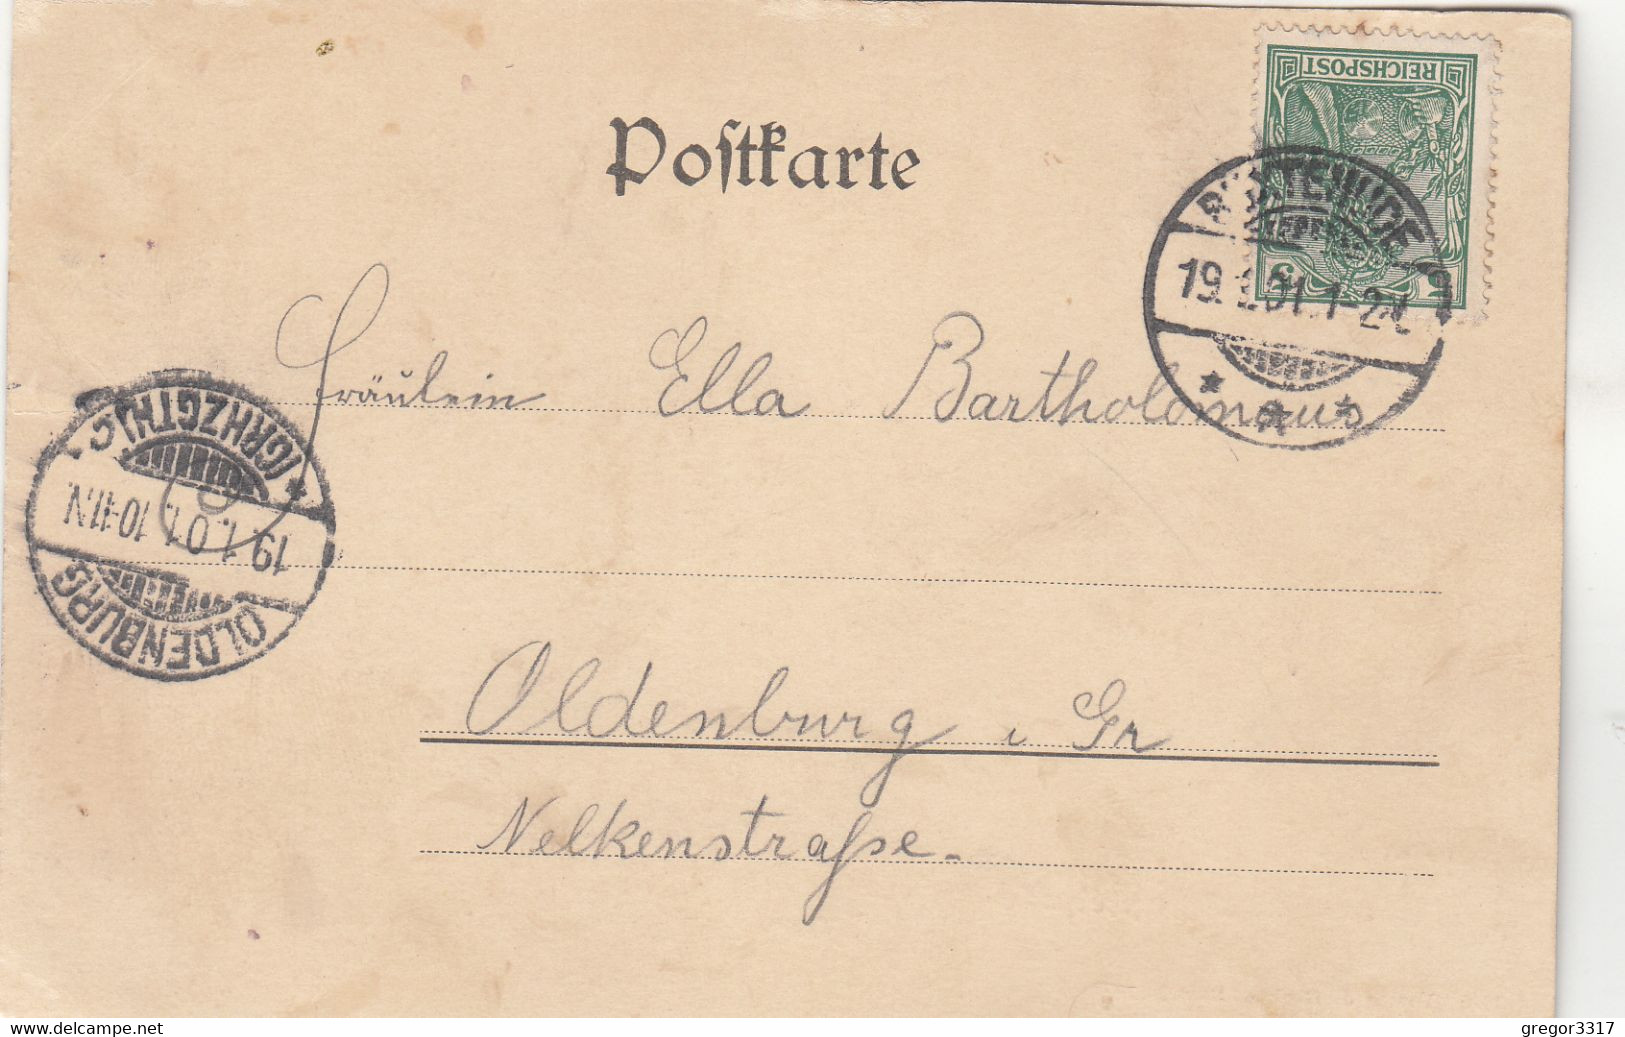 Postkarte
REICHSPOST
5 5
19. 01. 1-2
Fräulein Ella Bartholomäus
(GRHZGTH.) C
19. 1. 01. 10-11.N.
OLDENBURG
Oldenburg i Gr
Nelkenstraße.
www.delcampe.net
gregor3317